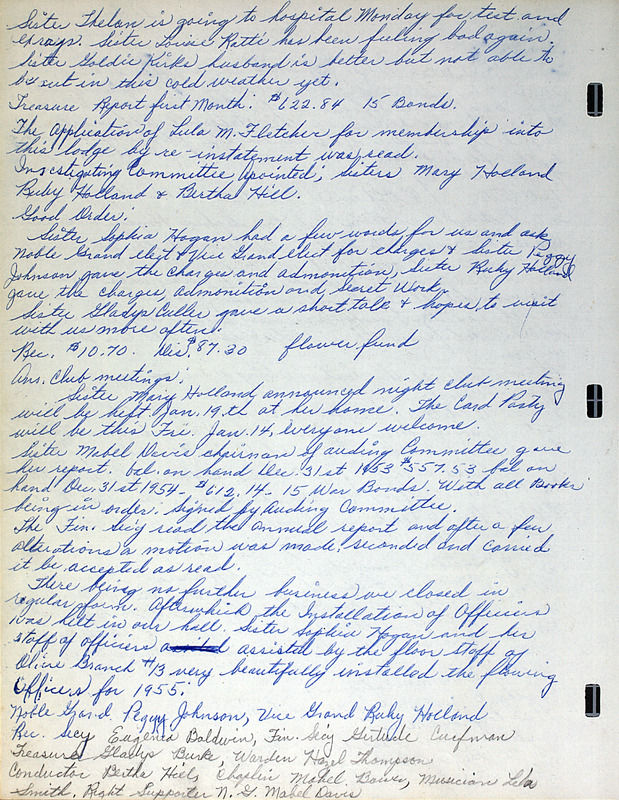 Sister Thelan is going to hospital Monday for test and
exrays. Sister Louise Ratti has been feeling bad again.
Sister Goldie Kirks husband is better but not able to
be out in this cold weather yet.
Treasure Report first Month: $622.84 15 Bonds.
The application of Lula M. Fletcher for membership into
this lodge by re-instatement was read.
Investigating Committee apointed; Sisters Mary Holland
Ruby Holland & Bertha Hill.
Good Order.
Sister Sophia Hogan had a few words for us and ask
Noble Grand elect & Vice Grand elect for charges & Sister Peggy
Johnson gave the charges and admonition, Sister Ruby Holland
gave the charges, admonition and Secret Work.
Sister Gladys Culler gave a short talk & hopes to visit
with us more often.
Rec. $10.70. Dis. $87.30 flower fund
Ans. Club meetings:
Sister Mary Holland announced night club meeting
will be helt Jan. 19.th at her home. The Card Party
will be this Fri. Jan. 14, everyone welcome.
Sister Mabel Davis chairman of auding Committee gave
her report. bal. on hand Dec. 31st 1953 $557.53 bal on
hand Dec. 31st 1954 - $612.14. 15 War Bonds. With all Books
being in order. Signed by Auding Committee.
The Fin. Sec'y read the annual report and after a few
alterations a motion was made, seconded and carried
it be accepted as read.
There being no further business we closed in
regular form. Afterwhich the Installation of Officers
was helt in our hall. Sister Sophia Hogan and her
staff of officers assisted by the floor staff of
Olive Branch #13 very beautifully installed the flowing
Officers for 1955.
Noble Grand Peggy Johnson, Vice Grand Ruby Holland
Rec. Secy Eugenia Baldwin, Fin. Secy Gertude Curfman
Treasure Gladys Burke, Warden Hazel Thompson
Conductor Bertha Hill, Chaplin Mabel Musician Lela
Smith, Right Supporter N. G. Mabel Davis